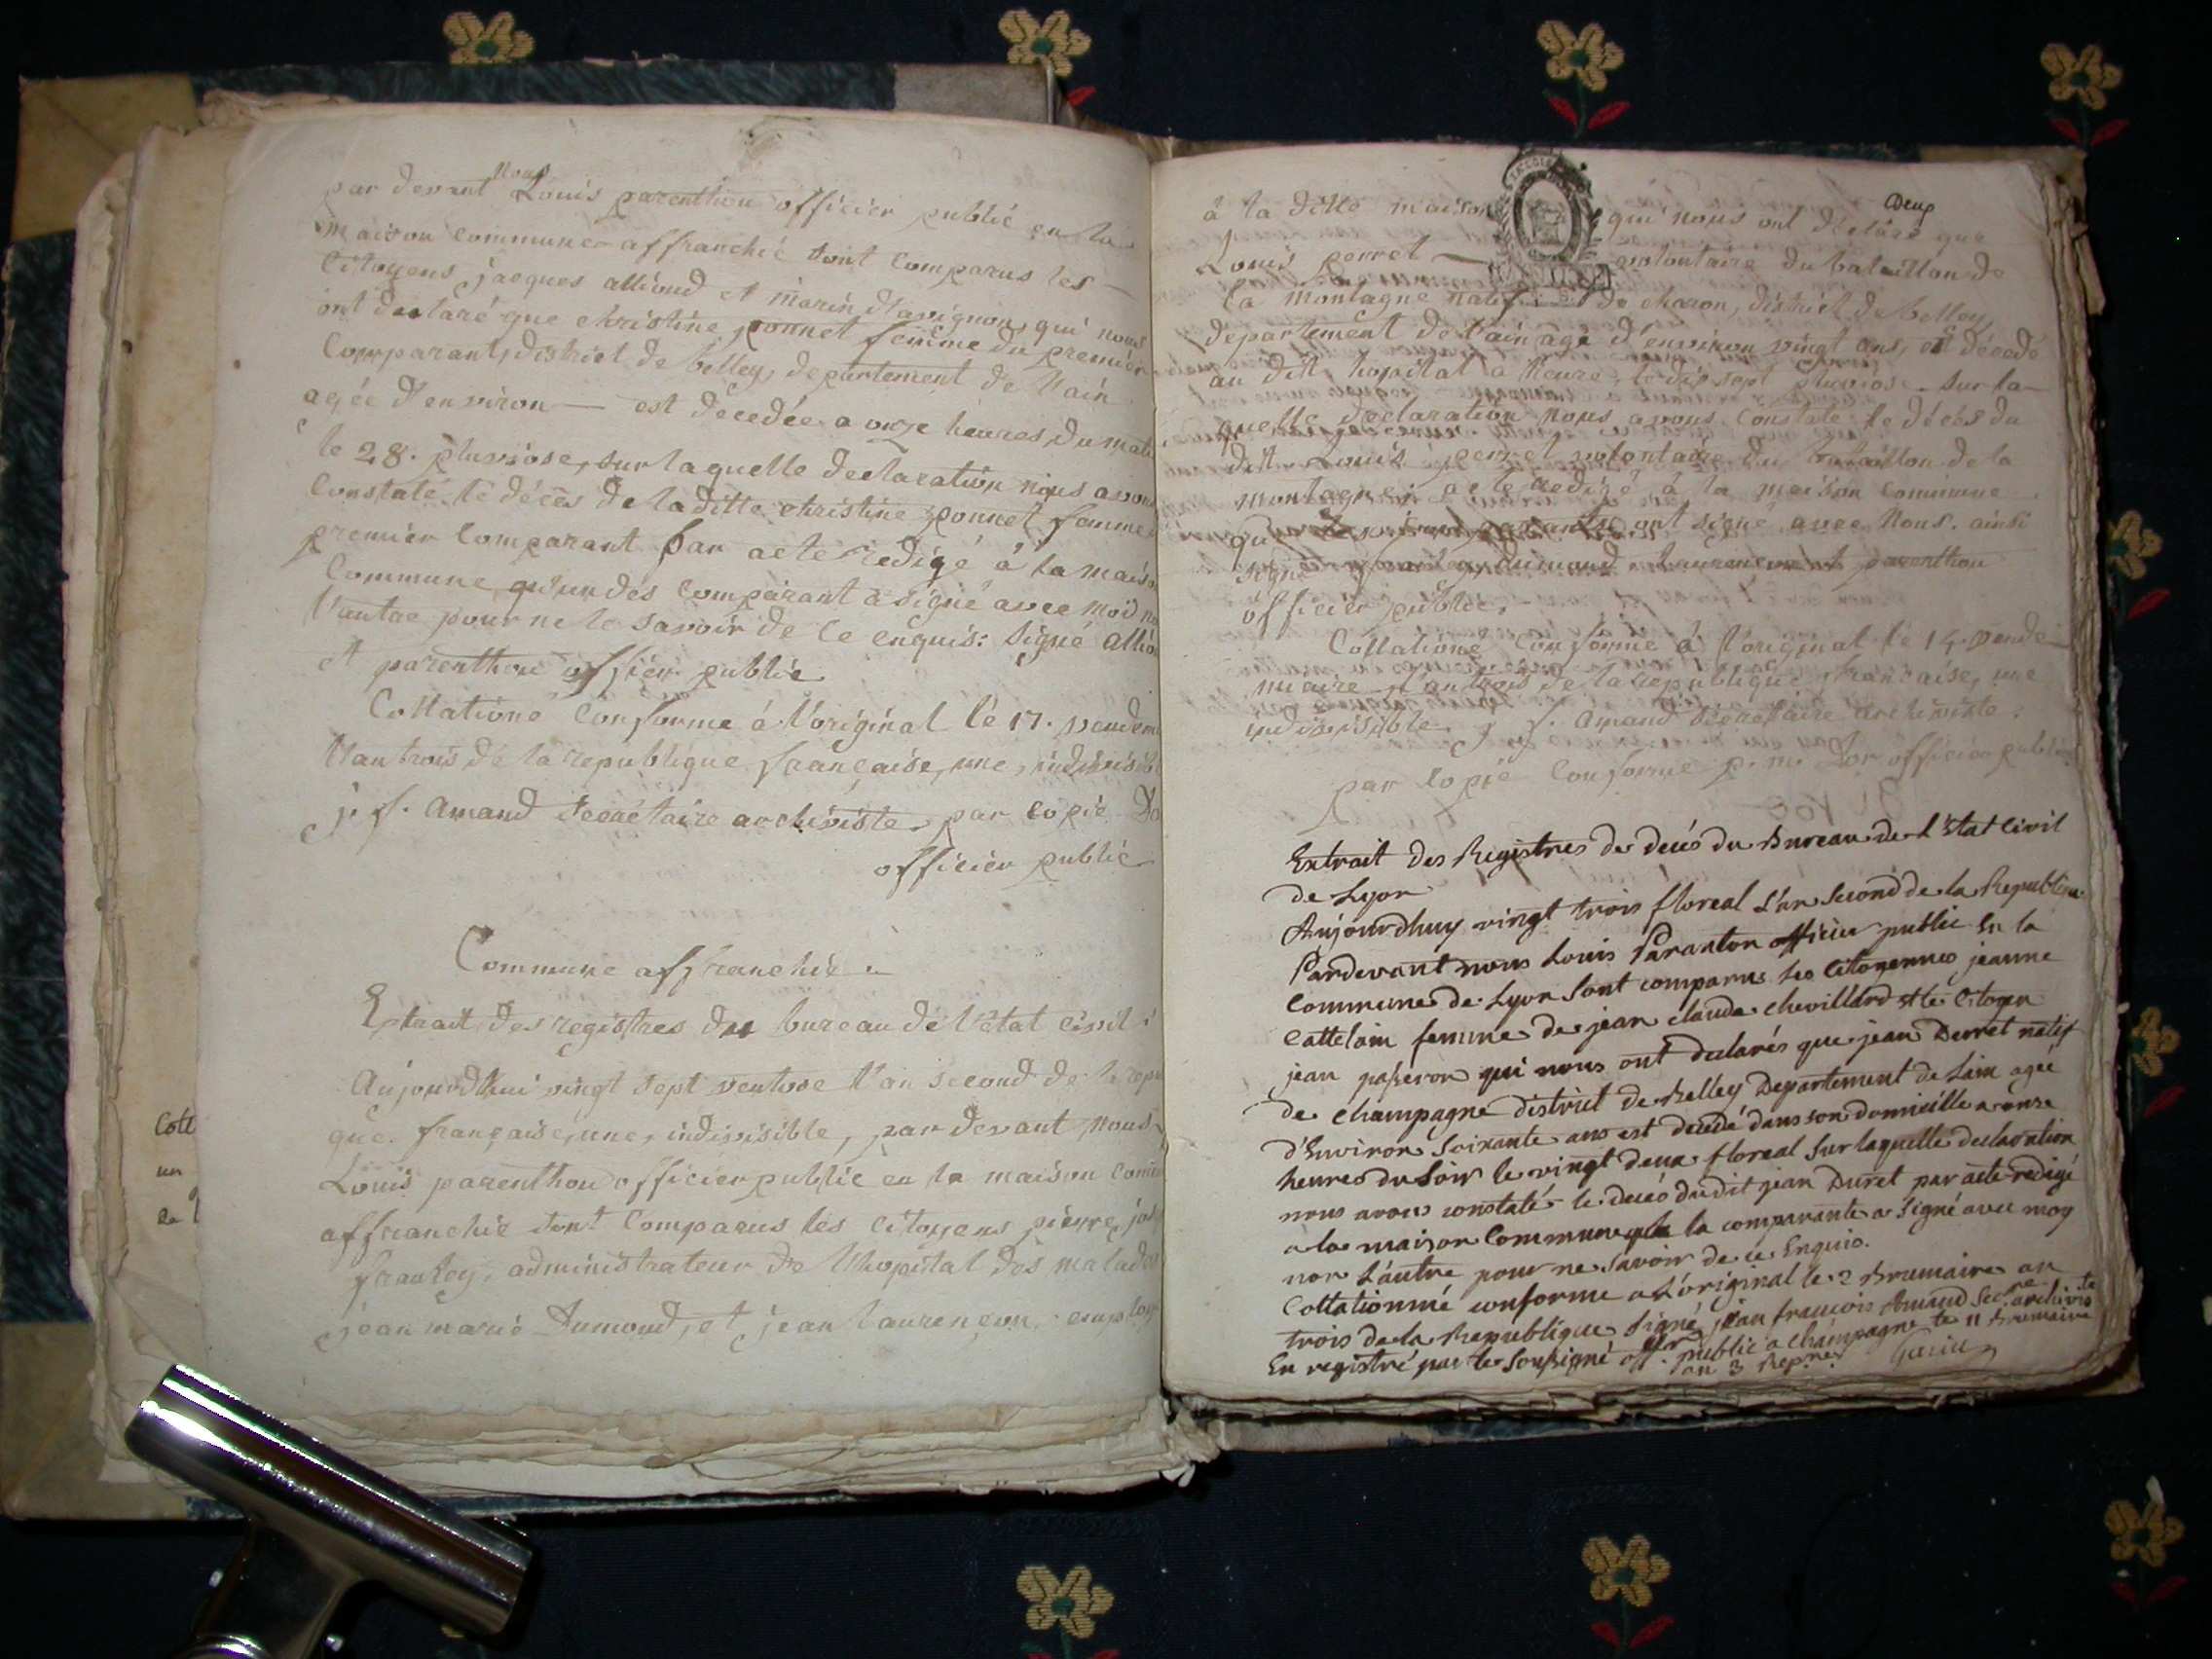 par devant nous Louis parenthou officier public en la
maison commune affranchié sont comparus les
Citoyens jacques allioud et marin d'avignon, qui nous
ont declaré que christine ponnet femme du premier
Comparant, district de belley, departement de l'ain
agée d'environ — est décedée a onze heures du mati
le 28. pluviose, sur laquelle declaration nous avons
Constaté le décès de laditte christine ponnet femme
premier Comparant par acte redigé à la maiso
Commune, qu'un des comparant a signé avec moi no
l'autre pour ne le savoir de ce enquis: signé allio
et parenthou offiier public
Collationé conforme à l'original le 17. vendem
l'an trois de la republique française, une, indivisib
j. f. amand secrétaire archiviste par copie
officier public
Commune affranchie
Extrait des registres du bureau de l'etat civil
Aujourd'hui vingt sept ventose l'an second de la repu
que française, une, indivisible, par devant nous
Louis parenthou officier public en la maison comm
affranchie sont comparus les citoyens pierre, jos
administrateur de l'hopital des malades
jean marie Dumond, et jean laurençon employ
Coll
un
la
Deux
à la ditte maison qui nous ont déclaré que
Louis perret — volontaire du bataillon de
la montagne natif de charon, district de belley
departement de l'ain agé d'environ vingt ans, est décedé
au dit hopital a heure, le dix sept pluviose. sur la
quelle declaration nous avons constaté le décès du
dit Louis perret volontaire du bataillon de la
montagne; acte redigé à la maison commune
qu ont signé avec nous. ainsi
signé dumond, laurençon et parenthou
officier public.
Collationé conforme à l'original le 14 vende
miaire l'an trois de la republique française, une
indivisible j. f. amand secrétaire archiviste.
par copie conforme p. m. officier public
Extrait des Registres de decés du Bureau de L'Etat Civil
de Lyon
Aujourdhuy vingt trois floreal L'an Second de la Republique
Pardevant nous Louis Paranton officier public En la
Commune de Lyon Sont comparus Les Citoyennes jeanne
Cattelain femme de jean claude chevillard et le Citoyen
jean passeron qui nous ont declarés que jean Durret natif
de Champagne district de Belley Departement de Lain agée
d'Environ Soixante ans est decedé dans son domicille a onze
heures du Soir le vingt deux floreal Sur laquelle declaration
nous avons constaté le decés dudit jean Duret par acte redigé
a la maison Commune la comparante a Signé avec moy
non L'autre pour ne Savoir de ce Enquis.
Collationné conforme a L'original le 2 Brumaire an
trois de la Republique Signé jean francois Amand Secre. archivis te
En registré par le Soussigné off. public a Champagne le 11 Brumaire
an 3 Repne.